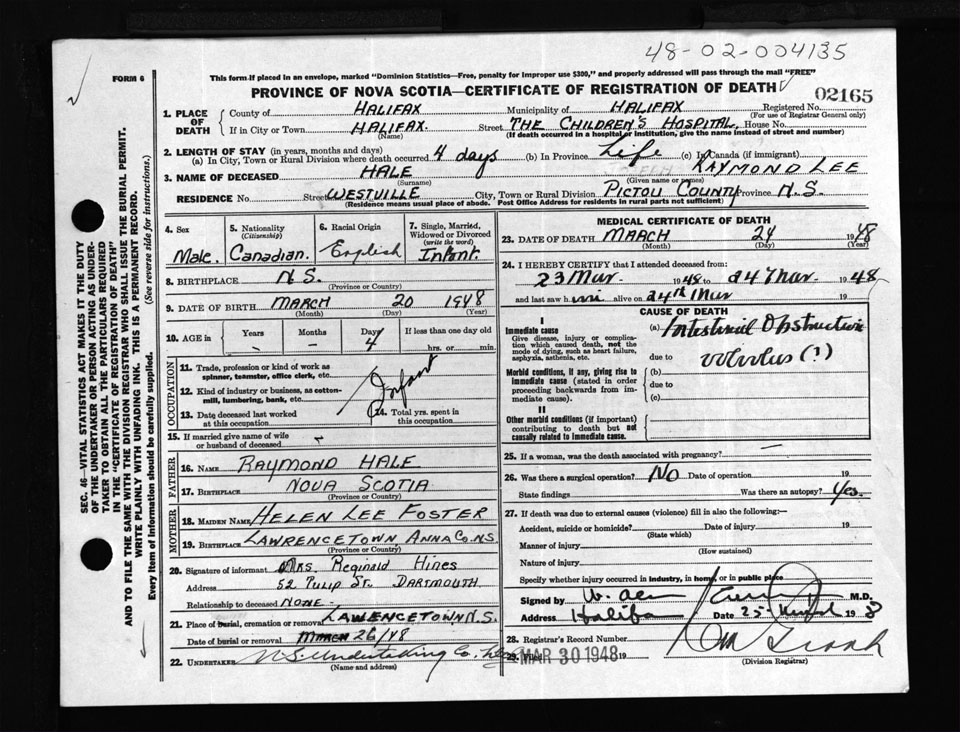 48-02-004135
FORM 6
This form if placed in an envelope, marked "Dominion Statistics—Free, penalty for improper use $300," and properly addressed will pass through the mail "FREE"
PROVINCE OF NOVA SCOTIA—CERTIFICATE OF REGISTRATION OF DEATH
02165
1. PLACE OF DEATH
County of HALIFAX Municipality of HALIFAX Registered No.
(For use of Registrar General only)
If in City or Town HALIFAX. Street THE CHILDREN'S HOSPITAL, House No.
(Name) (If death occurred in a hospital or institution, give the name instead of street and number)
2. LENGTH OF STAY (in years, months and days)
(a) In City, Town or Rural Division where death occurred 4 days (b) In Province Life (c) In Canada (if immigrant)
3. NAME OF DECEASED HALE RAYMOND LEE
(Surname) (Given name or names)
RESIDENCE No. Street WESTVILLE City, Town or Rural Division PICTOU COUNTY Province N.S.
(Residence means usual place of abode. Post Office Address for residents in rural parts not sufficient)
4. Sex
Male.
5. Nationality
(Citizenship)
Canadian.
6. Racial Origin
English
7. Single, Married, Widowed or Divorced
(write the word)
Infant.
8. BIRTHPLACE N.S.
(Province or Country)
9. DATE OF BIRTH MARCH 20 1948
(Month) (Day) (Year)
10. AGE in Years Months Days If less than one day old
- - 4 hrs. or min.
OCCUPATION
11. Trade, profession or kind of work as spinner, teamster, office clerk, etc.
12. Kind of industry or business, as cotton-mill, lumbering, bank, etc.
Infant
13. Date deceased last worked at this occupation
14. Total yrs. spent in this occupation
15. If married give name of wife or husband of deceased
FATHER
16. NAME RAYMOND HALE
17. BIRTHPLACE NOVA SCOTIA
(Province or Country)
MOTHER
18. MAIDEN NAME HELEN LEE FOSTER
19. BIRTHPLACE LAWRENCETOWN ANNA CO. N.S.
(Province or Country)
20. Signature of informant Mrs. Reginald Hines
Address 52 Tulip St. DARTMOUTH
Relationship to deceased NONE.
21. Place of burial, cremation or removal LAWENCETOWN N.S.
Date of burial or removal MARCH 26/48
22. UNDERTAKER N.S. Undertaking Co.
(Name and address)
MEDICAL CERTIFICATE OF DEATH
23. DATE OF DEATH MARCH 24 1948
(Month) (Day) (Year)
24. I HEREBY CERTIFY that I attended deceased from:
23 Mar. 1948 to 24 Mar. 1948
and last saw him alive on 24th Mar 19
CAUSE OF DEATH
I
Immediate cause
Give disease, injury or complication which caused death, not the mode of dying, such as heart failure, asphyxia, asthenia, etc.
Morbid conditions, if any, giving rise to immediate cause (stated in order proceeding backwards from immediate cause).
II
Other morbid conditions (if important) contributing to death but not causally related to immediate cause.
(a) Intestinal Obstruction
due to volvulus (1)
(b)
due to
(c)
25. If a woman, was the death associated with pregnancy?
26. Was there a surgical operation? No Date of operation 19
State findings Was there an autopsy? Yes.
27. If death was due to external causes (violence) fill in also the following:—
Accident, suicide or homicide? Date of injury 19
(State which)
Manner of injury
(How sustained)
Nature of injury
Specify whether injury occurred in industry, in home, or in public place
Signed by M.D.
Address Halifax Date 25- March 1948
28. Registrar's Record Number
29. Filed MAR 30 1948 19
(Division Registrar)
SEC. 46—VITAL STATISTICS ACT MAKES IT THE DUTY
OF THE UNDERTAKER OR PERSON ACTING AS UNDERTAKER
TO OBTAIN ALL THE PARTICULARS REQUIRED
IN THE "CERTIFICATE OF REGISTRATION OF DEATH"
AND TO FILE THE SAME WITH THE DIVISION REGISTRAR WHO SHALL ISSUE THE BURIAL PERMIT.
WRITE PLAINLY WITH UNFADING INK. THIS IS A PERMANENT RECORD.
Every item of information should be carefully supplied. (See reverse side for instructions.)